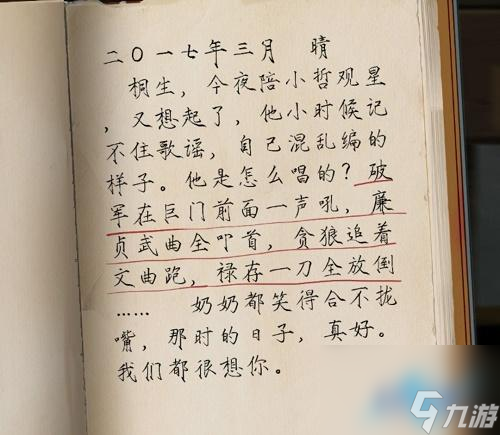 二〇一七年三月 晴
桐生，今夜陪小哲观星
，又想起了，他小时候记
不住歌谣，自己混乱编的
样子。他是怎么唱的？破
军在巨门前面一声吼，廉
贞武曲全叩首，贪狼追着
文曲跑，禄存一刀全放倒
……　　奶奶都笑得合不拢
嘴，那时的日子，真好。
我们都很想你。
九游